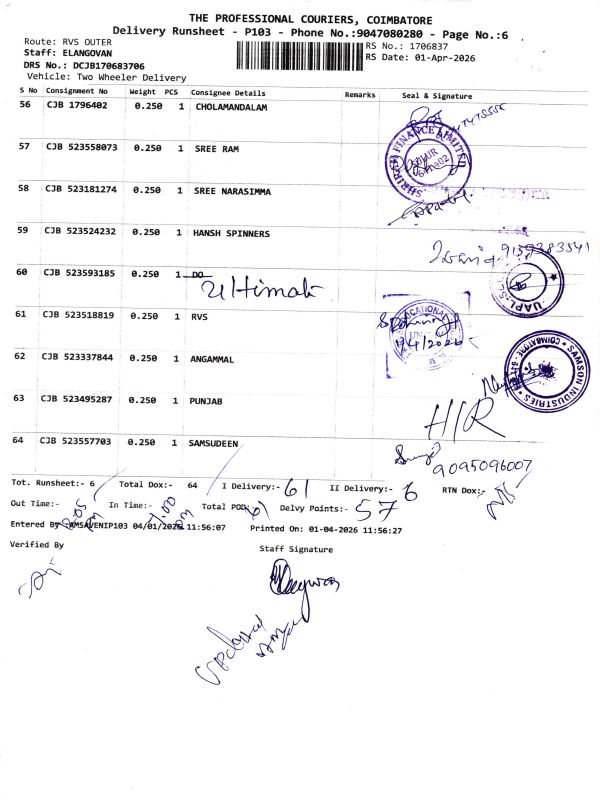 THE PROFESSIONAL COURIERS, COIMBATORE
Delivery Runsheet - P103 - Phone No.:9047080280 - Page No.:6
Route: RVS OUTER
RS No.: 1706837
Staff: ELANGOVAN
RS Date: 01-Apr-2026
DRS No.: DCJB170683706
Vehicle: Two Wheeler Delivery
S No Consignment No Weight PCS Consignee Details Remarks Seal & Signature
56 CJB 1796402 0.250 1 CHOLAMANDALAM
57 CJB 523558073 0.250 1 SREE RAM
SHRIRAM FINANCE LIMITED
58 CJB 523181274 0.250 1 SREE NARASIMMA
59 CJB 523524232 0.250 1 HANSH SPINNERS
9159383541
60 CJB 523593185 0.250 1 DO
Ultimate
61 CJB 523518819 0.250 1 RVS
1/4/2026
62 CJB 523337844 0.250 1 ANGAMMAL
SAMSON INDUSTRIES
COIMBATORE
63 CJB 523495287 0.250 1 PUNJAB
H/R
64 CJB 523557703 0.250 1 SAMSUDEEN
9095096007
Tot. Runsheet:- 6 Total Dox:- 64 I Delivery:- 61 II Delivery:- 6 RTN Dox:-
Out Time:- In Time:- 7.00 pm Total POD:- 61 Delvy Points:- 57
Entered By 04/01/2026 11:56:07 Printed On: 01-04-2026 11:56:27
Verified By
Staff Signature
updated